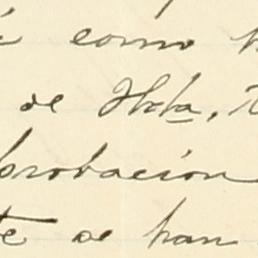 como
de Hbla,
probación
te se han